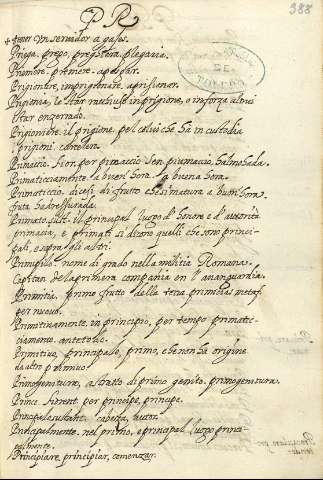 P R
388
un servidor a gajes.
Priega. prego, preghiera, plegaria.
Priemere. premere. apesgar.
Prigionare, imprigionare, aprisionar.
Prigionia, lo star rinchiuso in prigione, o in forza altrui
star encerrado.
Prigioniere. il prigione, pel colui che sta in custodia
prigioni.
Primaccio. sicon per pimaccio sen piumaccio, halmohada.
Primaticciamente. a buen' hora. a buena hora.
Primaticcio, dicesi di frutto che si matura a buon' hora.
fruta
Primato. sust. il principal luogo d' honore e d' autorità
primacia, e primati si dicono quelli che sono princi-
pali, e sopra gli altri.
Primipilo. nome di grado nella militia Romana.
Capitan de la primera compania en l' ananguardia.
Primitia, primo frutto della terra, primitias metaf
per nuevo.
Primitivamente, in principio, per tempo primatic-
ciamente. antetodo.
Primitivo, principale, primo, che non ha origine
da altro primitivo
Primogenitura, astratto di primo genito. primogenitura.
Prince. sincut. per principe, principe.
Principale sustant. cabeza, autor.
Principalmente. nel primo, e principal luogo princi-
palmente.
Principiare, principiar, comenzar.